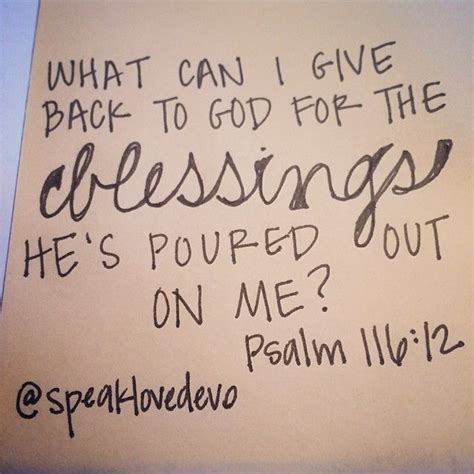 WHAT CAN I GIVE
BACK TO GOD FOR THE
blessings
HE'S POURED OUT
ON ME?
Psalm 116:12
@speaklovedevo